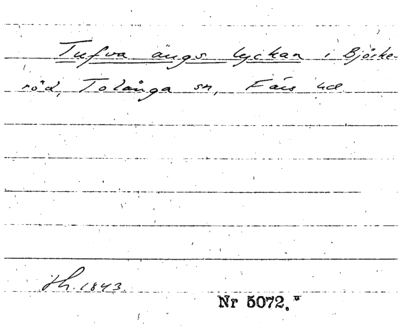 Tufva ängs lyckan i Björke-
röd, Tolånga sn, Färs hd
h. 1843.
Nr 5072.